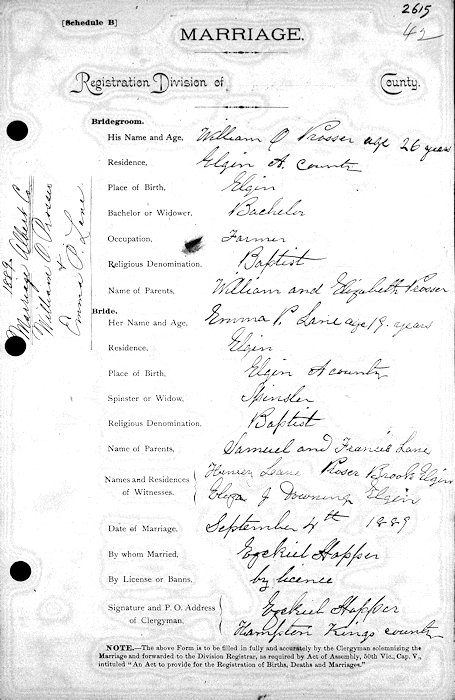 2615
42
[Schedule B]
MARRIAGE.
Registration Division of County.
Bridegroom.
His Name and Age, William O Prosser age 26 years
Residence, Elgin A. County
Place of Birth, Elgin
Bachelor or Widower, Bachelor
Occupation, Farmer
Religious Denomination, Baptist
Name of Parents, William and Elizabeth Prosser
Bride.
Her Name and Age, Emma P. Lane age 19. years
Residence, Elgin
Place of Birth, Elgin A county
Spinster or Widow, Spinster
Religious Denomination, Baptist
Name of Parents, Samuel and Francis Lane
Names and Residences Lane Proser Brook Elgin
of Witnesses. Eliza J Downing Elgin
Date of Marriage, September 4th 1889
By whom Married, Ezekiel Hopper
By License or Banns, by licence
Signature and P. O. Address Ezekiel Hopper
of Clergyman. Hampton Kings county
NOTE.—The above Form is to be filled in fully and accurately by the Clergyman solemnizing the
Marriage and forwarded to the Division Registrar, as required by Act of Assembly, 50th Vic., Cap. V.,
intituled "An Act to provide for the Registration of Births, Deaths and Marriages."
1889.
Marriage Albert Co.
William O Prosser
+
Emma P. Lane